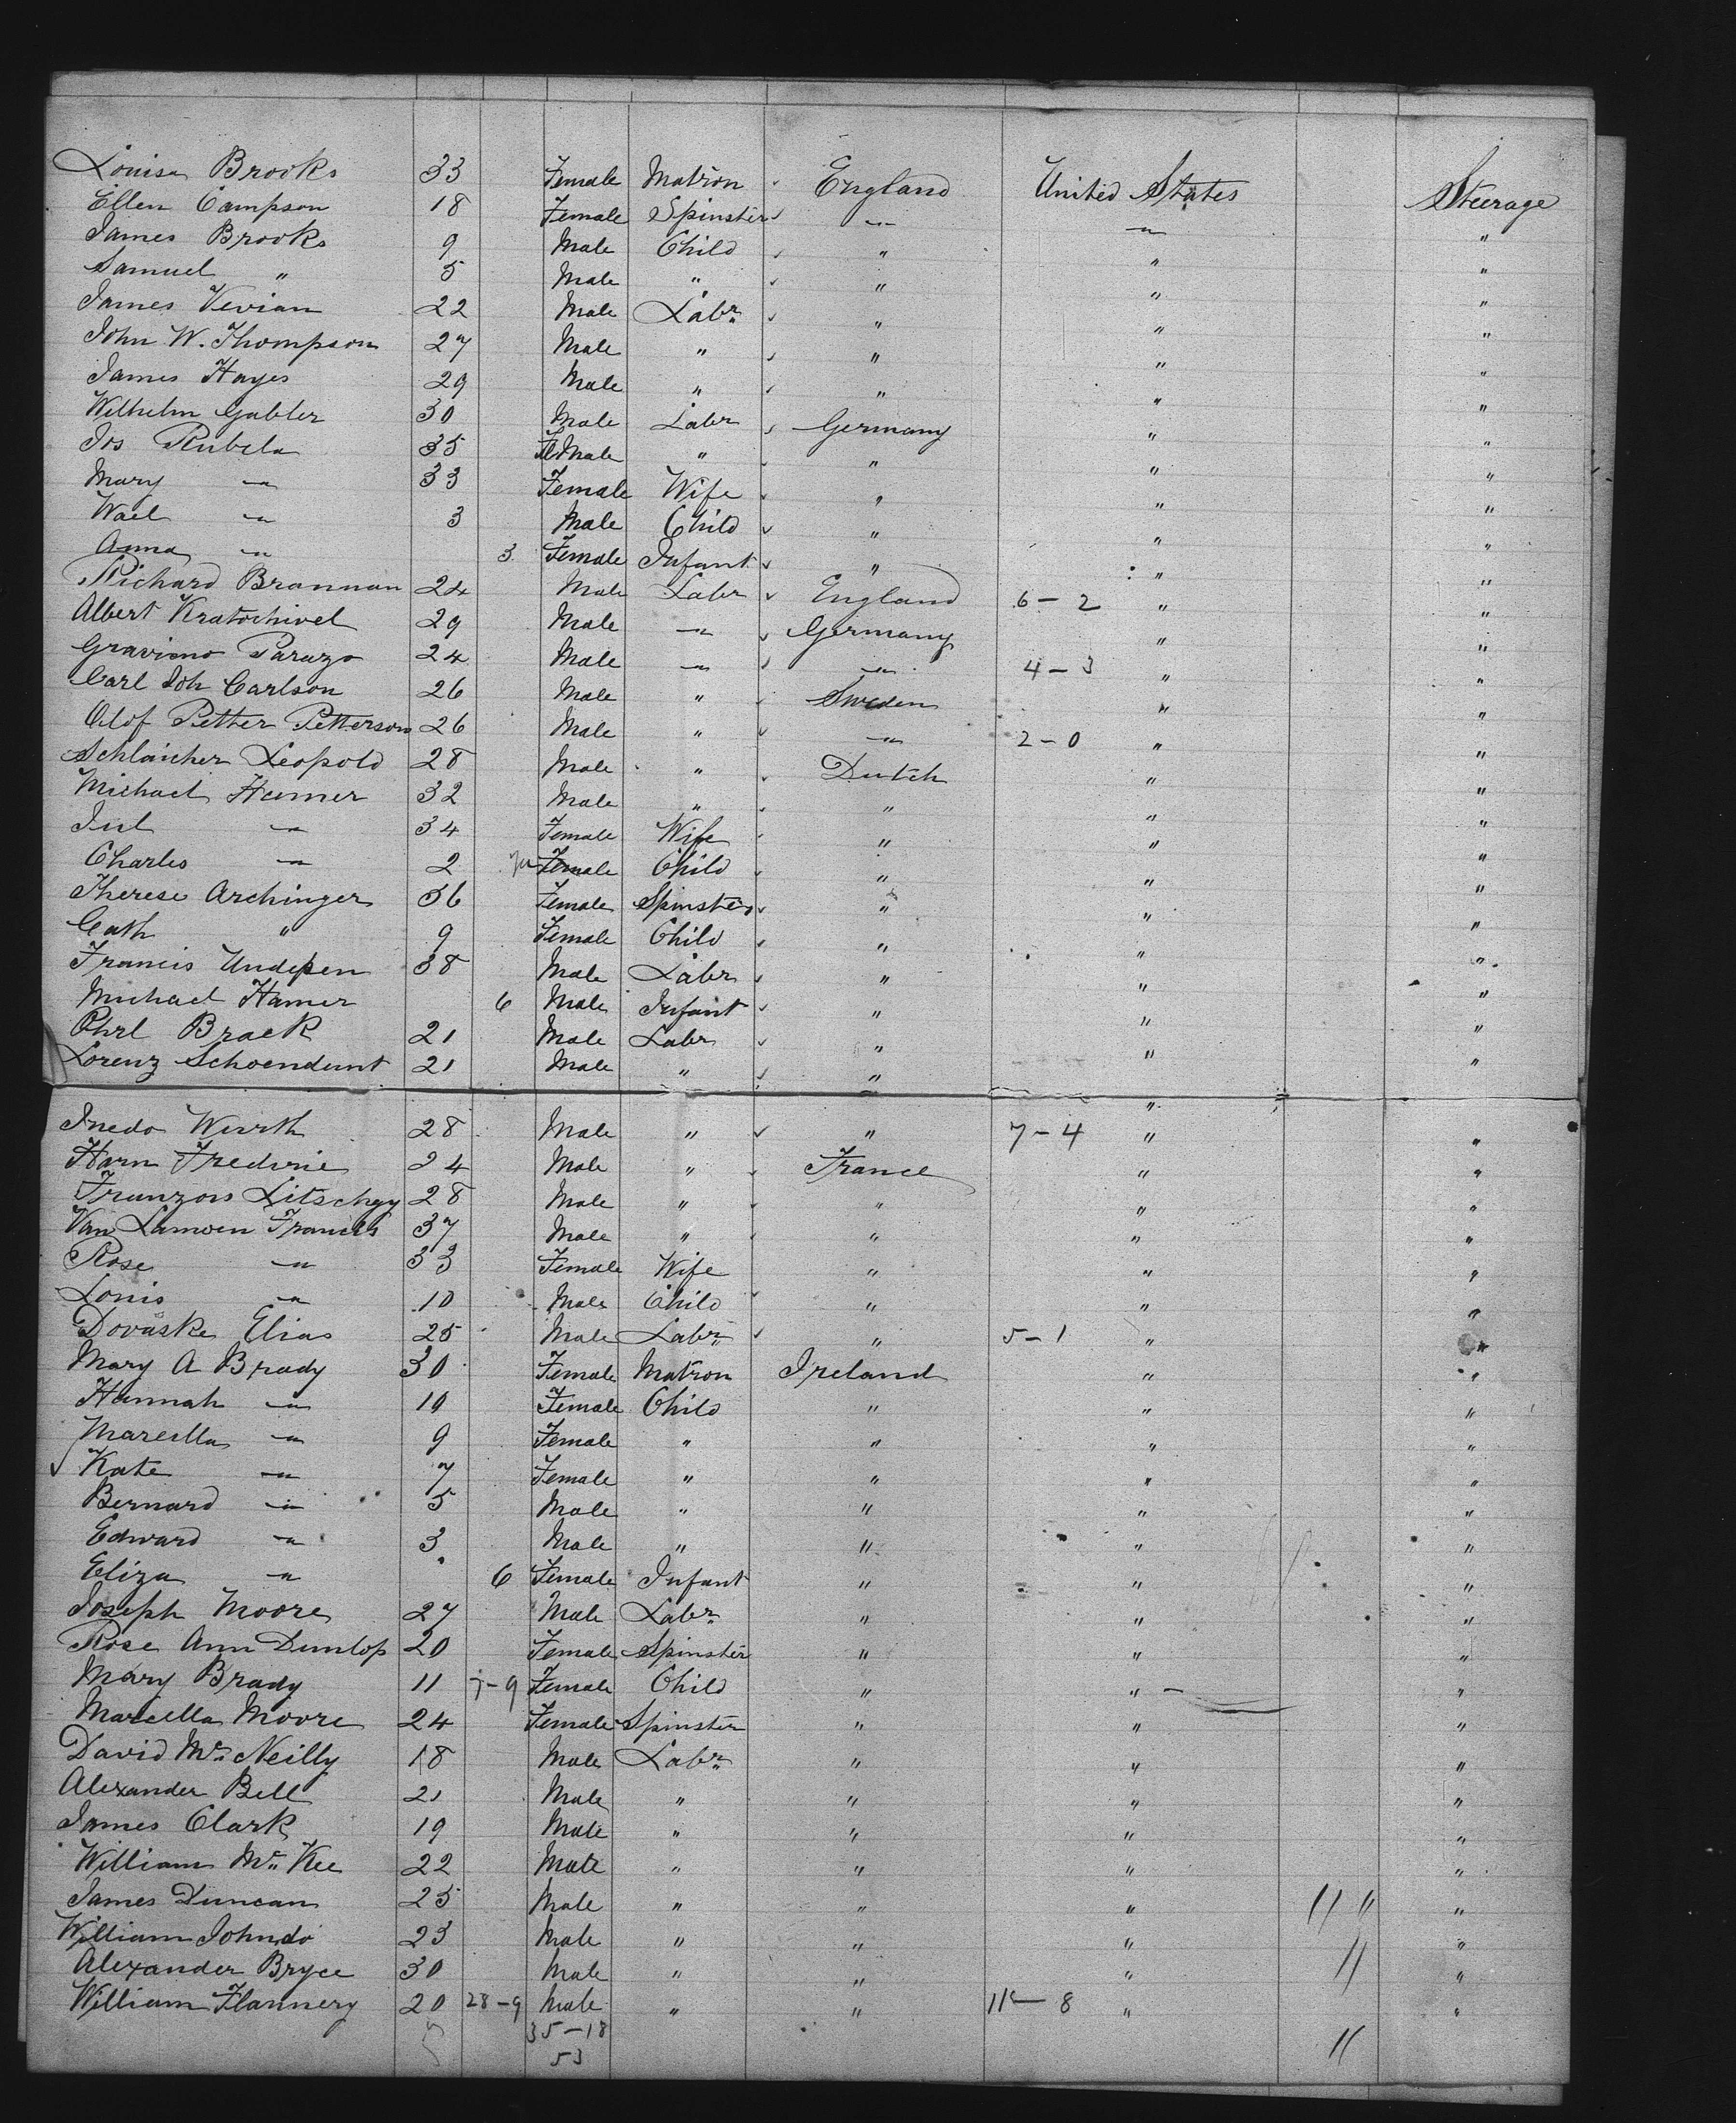 Louisa Brooks 33 Female Matron England United States Steerage
Ellen Campson 18 Female Spinster " " "
James Brooks 9 Male Child " " "
Samuel " 5 Male " " " "
James Vivian 22 Male Labr " " "
John W. Thompson 27 Male " " " "
James Hayes 29 Male " " " "
Wilhelm Gabler 30 Male Labr Germany " "
Jos Rubela 35 Male " " " "
Mary " 33 Female Wife " " "
Wael " 3 Male Child " " "
Anna " 3 Female Infant " " "
Richard Brannan 24 Male Labr England 6-2 " "
Albert Kratochivel 29 Male " Germany " "
Gravieno Parazo 24 Male " " 4-3 " "
Carl Joh Carlson 26 Male " Sweden " "
Olof Petter Petterson 26 Male " " 2-0 " "
Schlaicher Leopold 28 Male " Dutch " "
Michael Hamer 32 Male " " " "
Jul " 34 Female Wife " " "
Charles " 2 Female Child " " "
Therese Archinger 36 Female Spinster " " "
Cath " 9 Female Child " " "
Francis Undepen 38 Male Labr " " "
Michael Hamer 6 Male Infant " " "
Brack 21 Male Labr " " "
Lorenz Schoendunt 21 Male " " " "
Wurth 28 Male " " 7-4 " "
Harn Frederic 24 Male " France " "
Franzois Litschgy 28 Male " " " "
Van Lamoen Francis 37 Male " " " "
Rose " 33 Female Wife " " "
Louis " 10 Male Child " " "
Dovaske Elias 25 Male Labr " 5-1 " "
Mary A Brady 30 Female Matron Ireland " "
Hannah " 10 Female Child " " "
Marcella " 9 Female " " " "
Kate " 7 Female " " " "
Bernard " 5 Male " " " "
Edward " 3 Male " " " "
Eliza " 6 Female Infant " " "
Joseph Moore 27 Male Labr " " "
Rose Ann Dunlop 20 Female Spinster " " "
Mary Brady 11 7-9 Female Child " " "
Marcella Moore 24 Female Spinster " " "
David Mc Neilly 18 Male Labr " " "
Alexander Bell 21 Male " " " "
James Clark 19 Male " " " "
William Mc Kee 22 Male " " " "
James Duncan 25 Male " " 11 " "
William 23 Male " " " "
Alexander Bryce 30 Male " " " 11 "
William Flannery 20 28-9 Male " " 11-8 " "
35-18 11
53